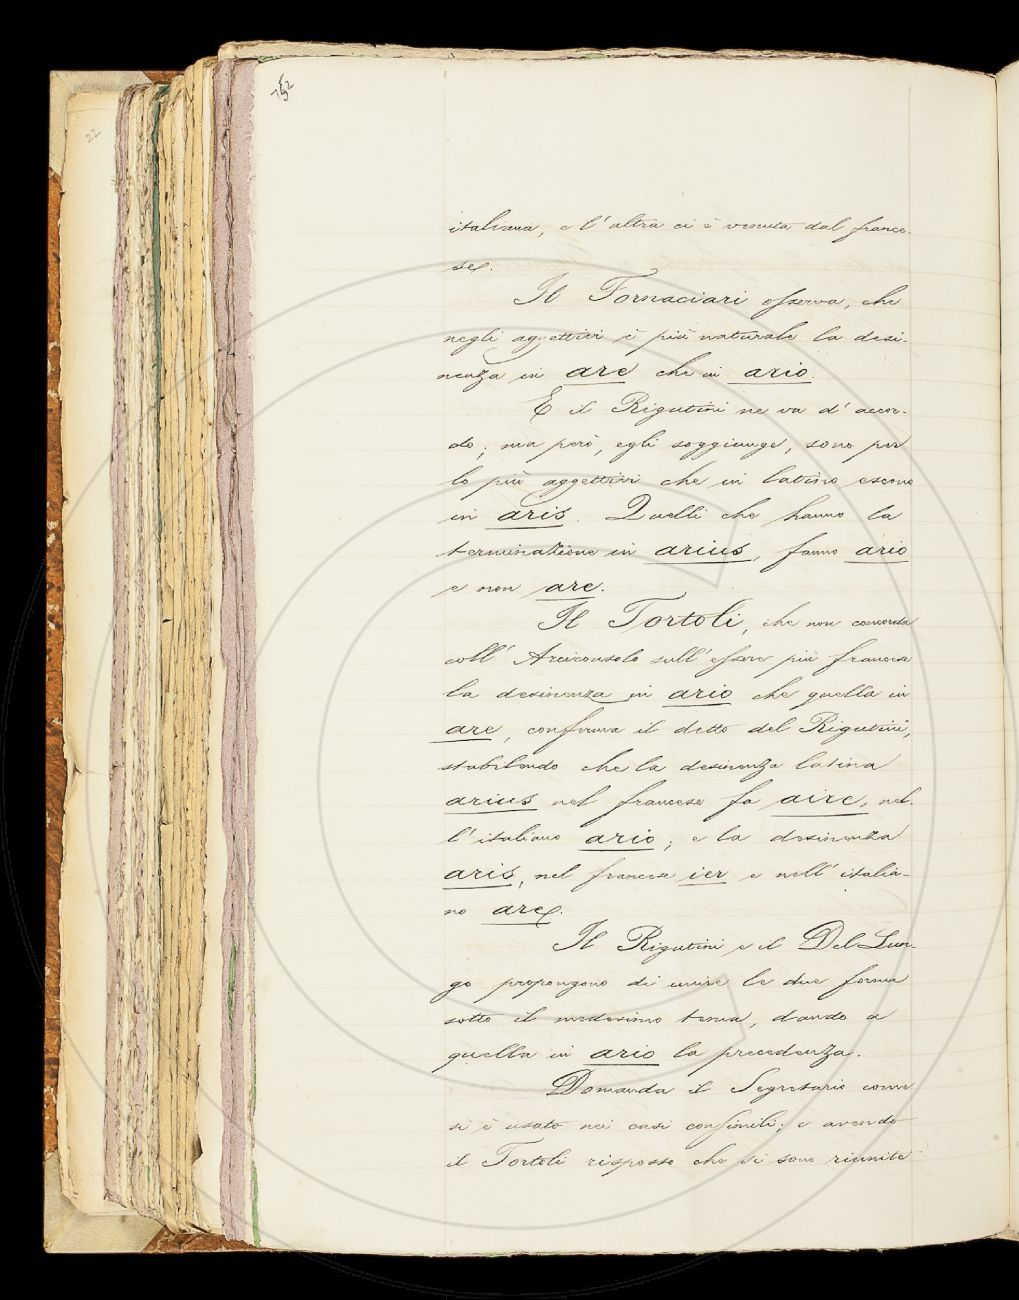 752
22
italiana, e l' altra ci è venuta dal france-
se.
Il Fornaciari osserva, che
negli aggettivi è più naturale la desi-
nenza in are che in ario.
E il Rigutini ne va d' accor-
do; ma però, egli soggiunge, sono per
lo più aggettivi che in latino escono
in aris. Quelli che hanno la
terminazione in arius, fanno ario
e non are.
Il Tortoli, che non concorda
coll' Arciconsolo sull' essere più francese
la desinenza in ario che quella in
are, conferma il detto del Rigutini,
stabilendo che la desinenza latina
arius nel francese fa aire, nel-
l' italiano ario; e la desinenza
aris, nel francese ier e nell' italia-
no are.
Il Rigutini e il Del Lun-
go propongono di unire le due forme
sotto il medesimo tema, dando a
quella in ario la precedenza.
Domanda il Segretario come
si è usato nei casi consimili; e avendo
il Tortoli risposto che si sono riunite